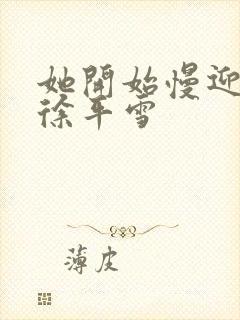 她開始慢迎
徐平雪
薄皮